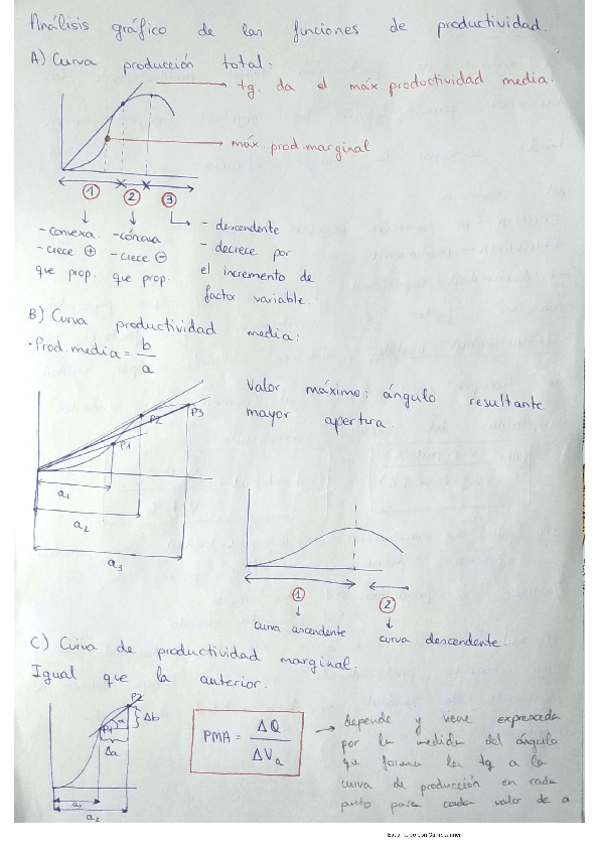 Análisis gráfico de las funciones de productividad.
A) Curva producción total:
tg. da el máx. productividad media.
máx. prod. marginal
1 2 3
- convexa.
- crece ⊕
que prop.
- cóncava
- crece ⊖
que prop.
- descendente
- decrece por
el incremento de
factor variable.
B) Curva productividad media:
• Prod. media = b/a
Valor máximo: ángulo resultante
mayor apertura.
P1 P2 P3
a1
a2
a3
1 2
curva ascendente
curva descendente
C) Curva de productividad marginal.
Igual que la anterior.
P2
P1 α Δb
Δa
a1
a2
PMA = ΔQ/ΔVa
depende y viene expresada
por la medida del ángulo
que forma la tg a la
curva de producción en cada
punto para cada valor de a